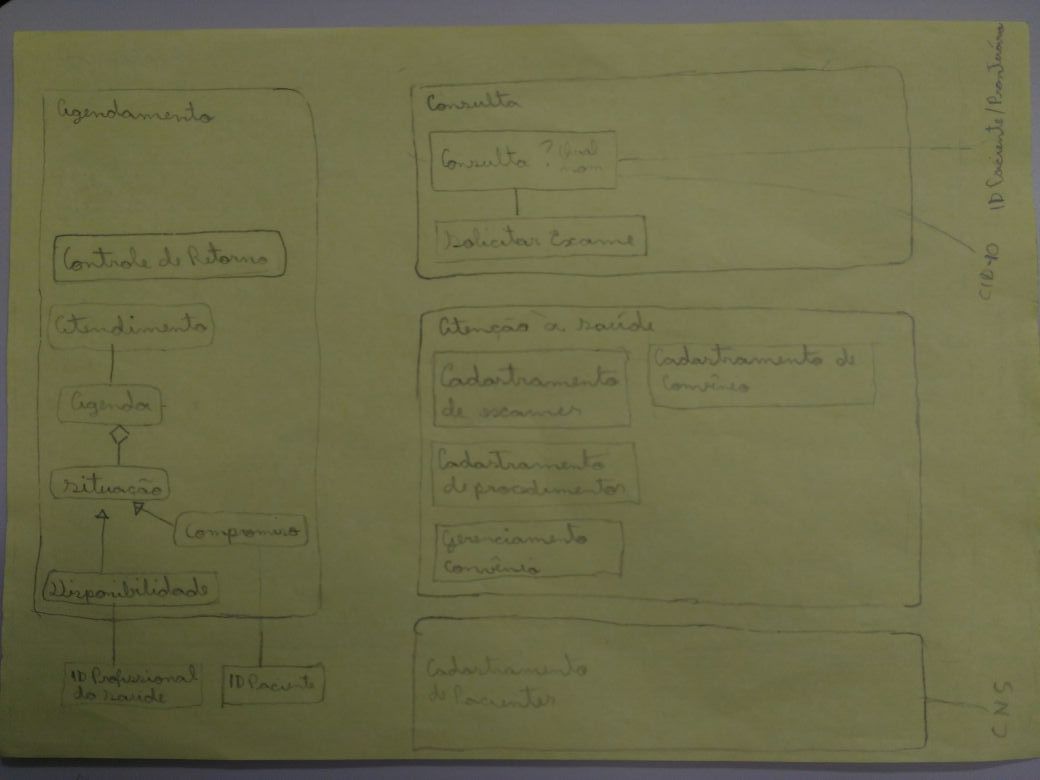 Agendamento
Controle de Retorno
Atendimento
Agenda
Situação
Compromisso
Disponibilidade
ID Profissional
da saúde
ID Paciente
Consulta
Consulta ? Qual
nom
Solicitar Exame
Atenção à saúde
Cadastramento
de exames
Cadastramento de
Convênio
Cadastramento
de procedimentos
Gerenciamento
Convênio
Cadastramento
de Pacientes
ID Paciente/Prontuário
CID 10
CNS